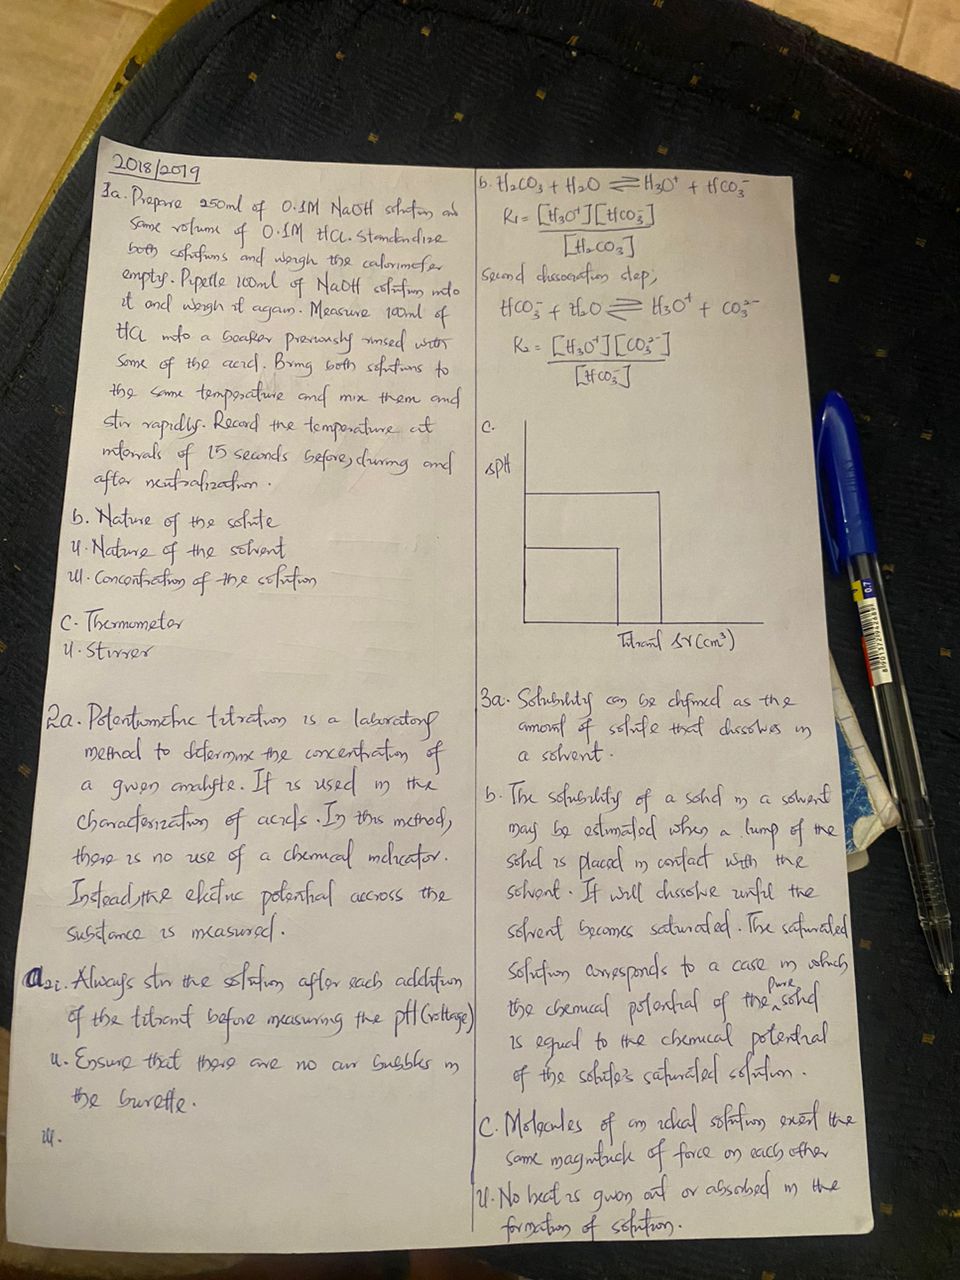 2018/2019
1a. Prepare 250ml of 0.1M NaOH solution and
same volume of 0.1M HCl. Standardize
both solutions and weigh the calorimeter
empty. Pipette 100ml of NaOH solution into
it and weigh it again. Measure 100ml of
HCl into a beaker previously rinsed with
some of the acid. Bring both solutions to
the same temperature and mix them and
stir rapidly. Record the temperature at
intervals of 15 seconds before, during and
after neutralization.
b. Nature of the solute
ii. Nature of the solvent
iii. Concentration of the solution
C. Thermometer
ii. Stirrer
2a. Potentiometric titration is a laboratory
method to determine the concentration of
a given analyte. It is used in the
characterization of acids. In this method,
there is no use of a chemical indicator.
Instead, the electric potential accross the
substance is measured.
a2i. Always stir the solution after each addition
of the titrant before measuring the pH (voltage)
ii. Ensure that there are no air bubbles in
the burette.
iii.
b. H₂CO₃ + H₂O ⇌ H₃O⁺ + HCO₃⁻
K₁ = [H₃O⁺][HCO₃⁻]
[H₂CO₃]
Second dissociation step;
HCO₃⁻ + H₂O ⇌ H₃O⁺ + CO₃²⁻
K₂ = [H₃O⁺][CO₃²⁻]
[HCO₃⁻]
C.
ΔpH
Titrant ΔV(cm³)
3a. Solubility can be defined as the
amount of solute that dissolves in
a solvent.
b. The solubility of a solid in a solvent
may be estimated when a lump of the
solid is placed in contact with the
solvent. It will dissolve until the
solvent becomes saturated. The saturated
solution corresponds to a case in which
the chemical potential of the pure solid
is equal to the chemical potential
of the solute's saturated solution.
C. Molecules of an ideal solution exert the
same magnitude of force on each other
ii. No heat is given out or absorbed in the
formation of solution.
0.7
8901372942689